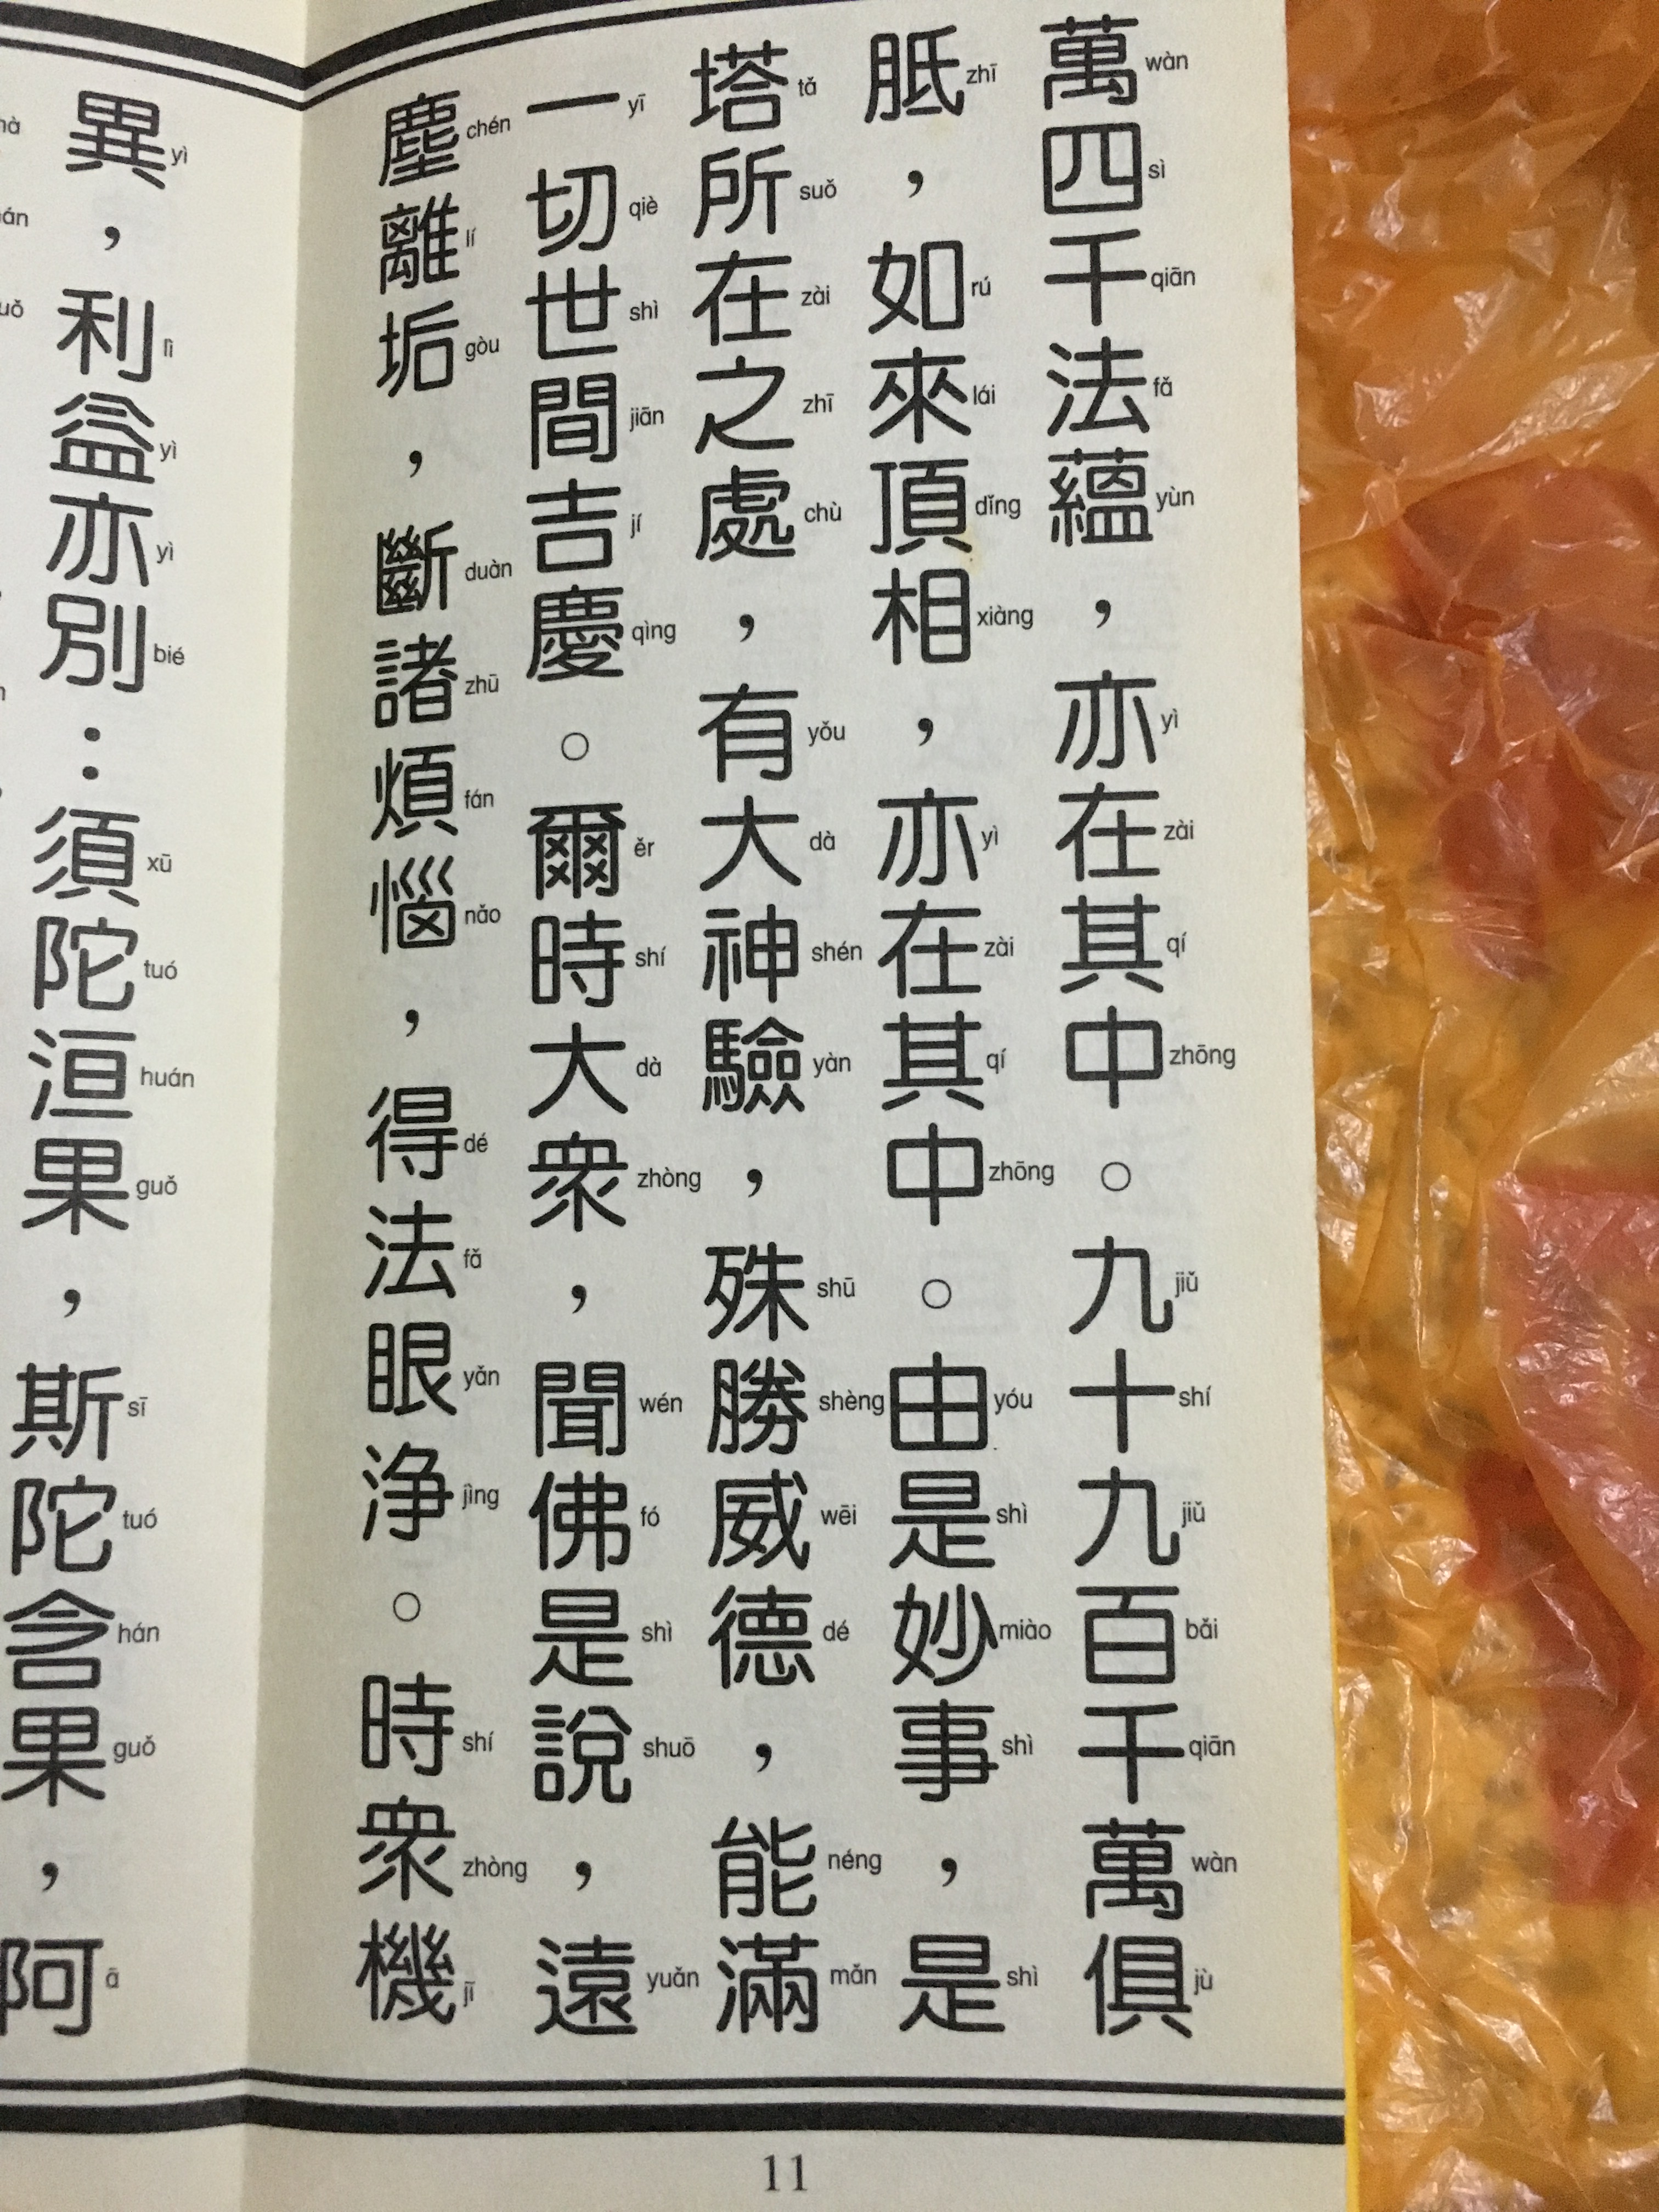 萬四千法蘊，亦在其中。九十九百千萬俱
胝，如來頂相，亦在其中。由是妙事，是
塔所在之處，有大神驗，殊勝威德，能滿
一切世間吉慶。爾時大眾，聞佛是說，遠
塵離垢，斷諸煩惱，得法眼淨。時眾機
異，利益亦別：須陀洹果，斯陀含果，阿
wàn sì qiān fǎ yùn yì zài qí zhōng jiǔ shí jiǔ bǎi qiān wàn jù
zhī rú lái dǐng xiàng yì zài qí zhōng yóu shì miào shì shì
tǎ suǒ zài zhī chù yǒu dà shén yàn shū shèng wēi dé néng mǎn
yī qiè shì jiān jí qìng ěr shí dà zhòng wén fó shì shuō yuǎn
chén lí gòu duàn zhū fán nǎo dé fǎ yǎn jìng shí zhòng jī
yì lì yì yì bié xū tuó huán guǒ sī tuó hán guǒ ā
11